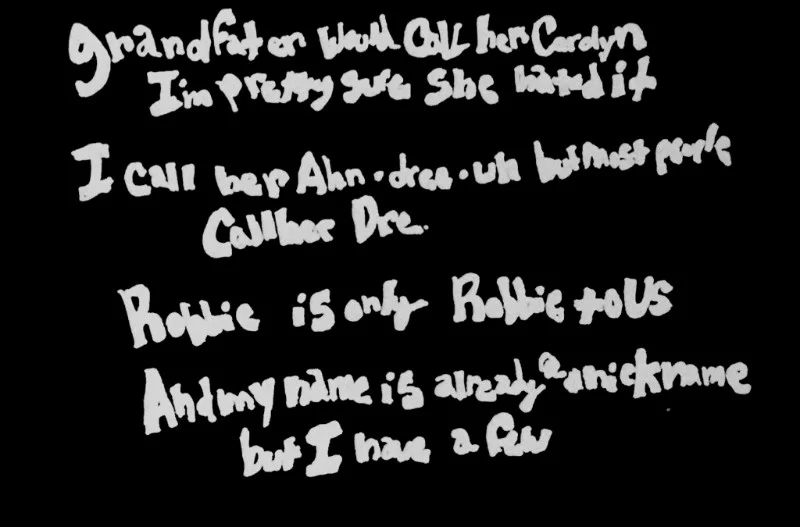 grandfather would Call her Carolyn
I'm pretty sure She hated it
I call her Ahn·dree·uh but most people
Call her Dre.
Robbie is only Robbie to Us
And my name is already a a nickname
but I have a few